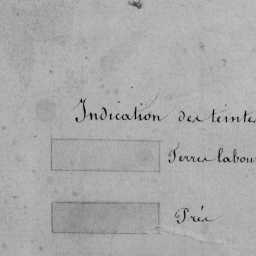 Indication des teinte
Terres labou
Prés